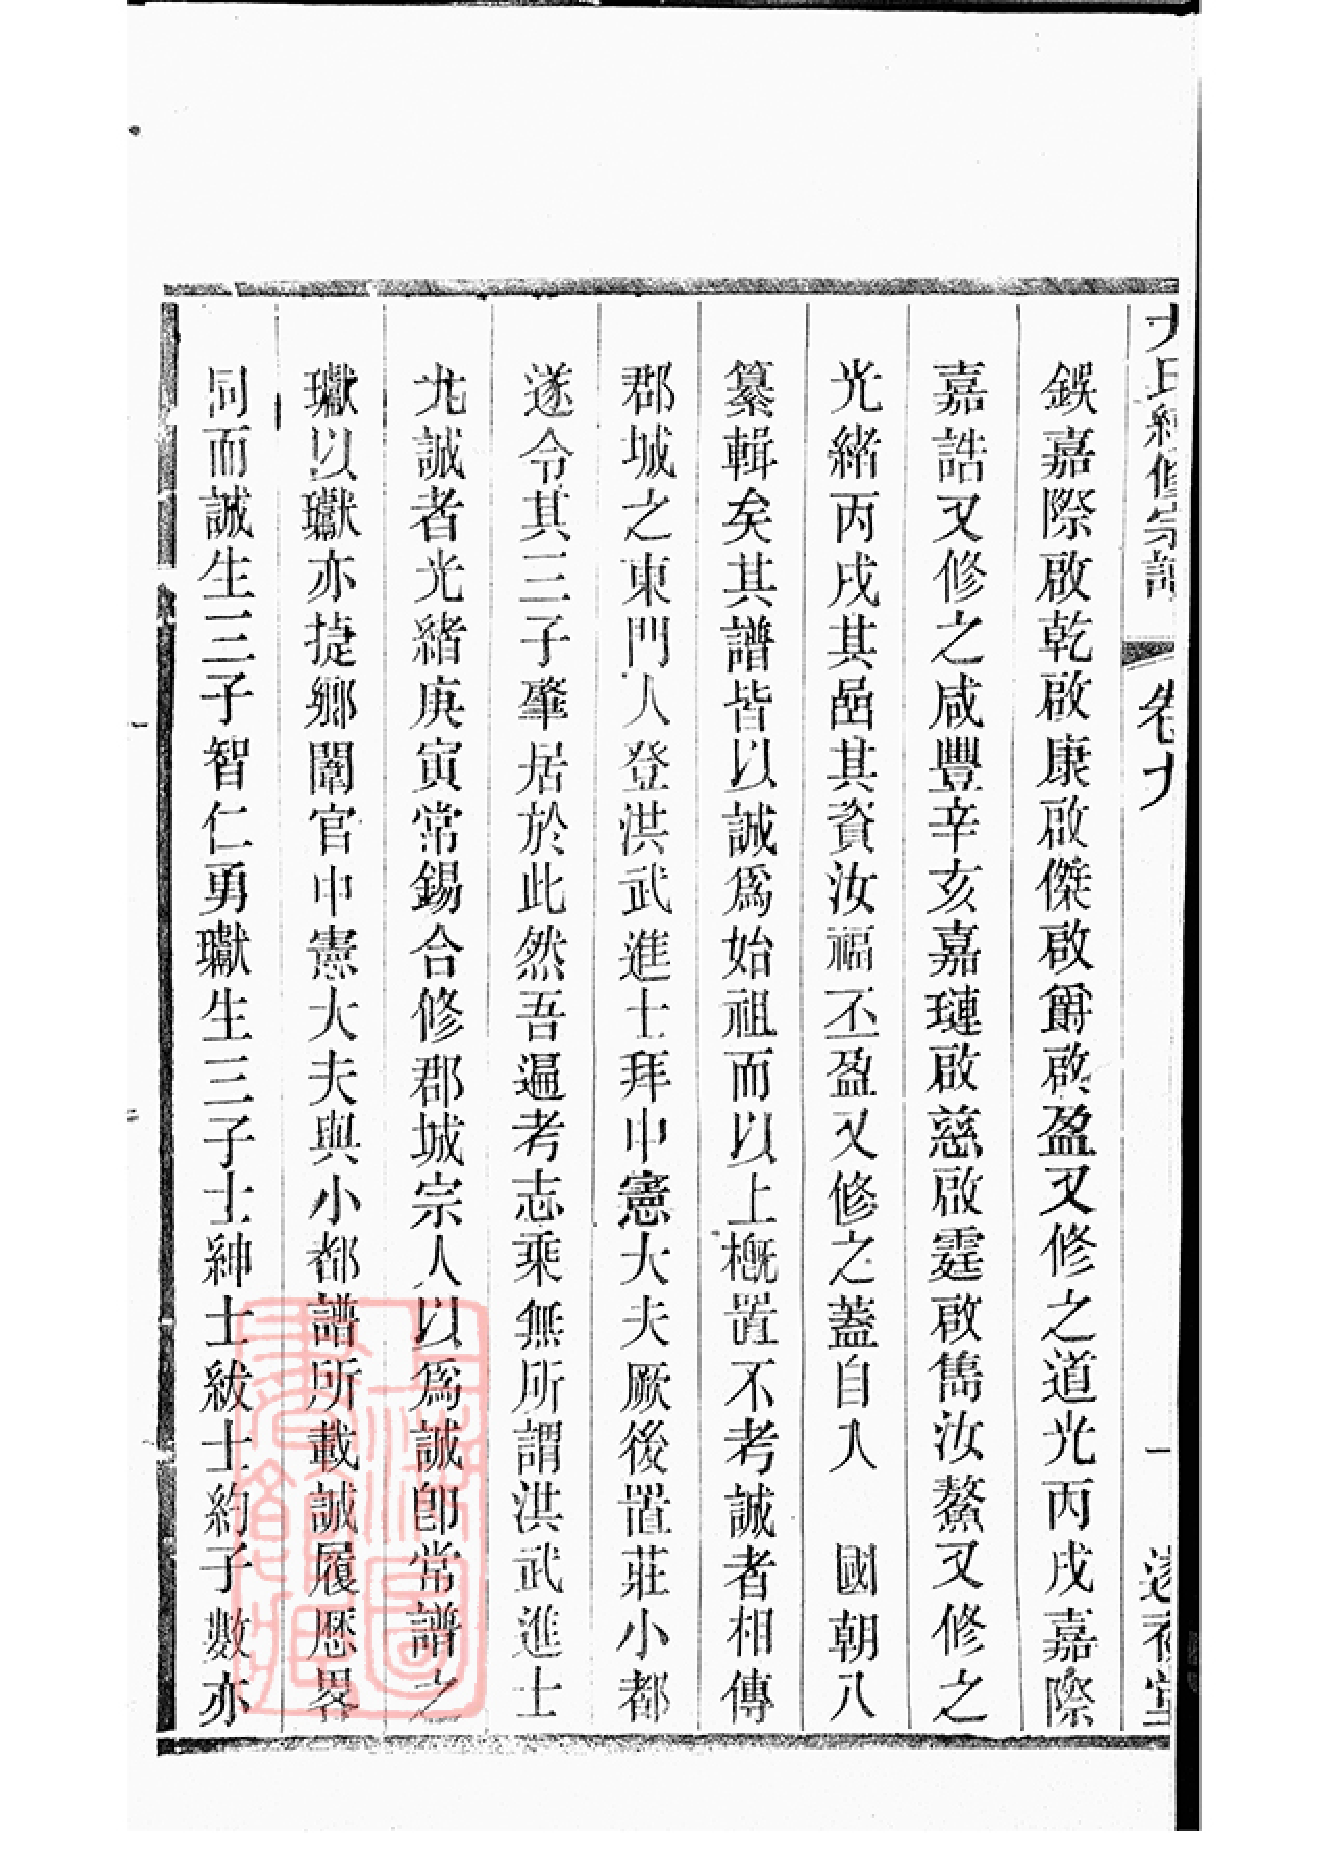 氏續修宗譜 卷九 一
鋘嘉際啟乾啟康啟傑啟爵啟盈又修之道光丙戌嘉際
嘉誥又修之咸豐辛亥嘉璉啟慈啟霆啟雋汝鰲又修之
光緒丙戌其喦其資汝福丕盈又修之蓋自入 國朝八
纂輯矣其譜皆以誠爲始祖而以上概置不考誠者相傳
郡城之東門人登洪武進士拜中憲大夫厥後置莊小都
遂令其三子肇居於此然吾遍考志乘無所謂洪武進士
尤誠者光緒庚寅常錫合修郡城宗人以爲誠卽常譜之
瓛以瓛亦捷鄉闈官中憲大夫與小都譜所載誠履歷畧
同而誠生三子智仁勇瓛生三子士紳士紱士約子數亦